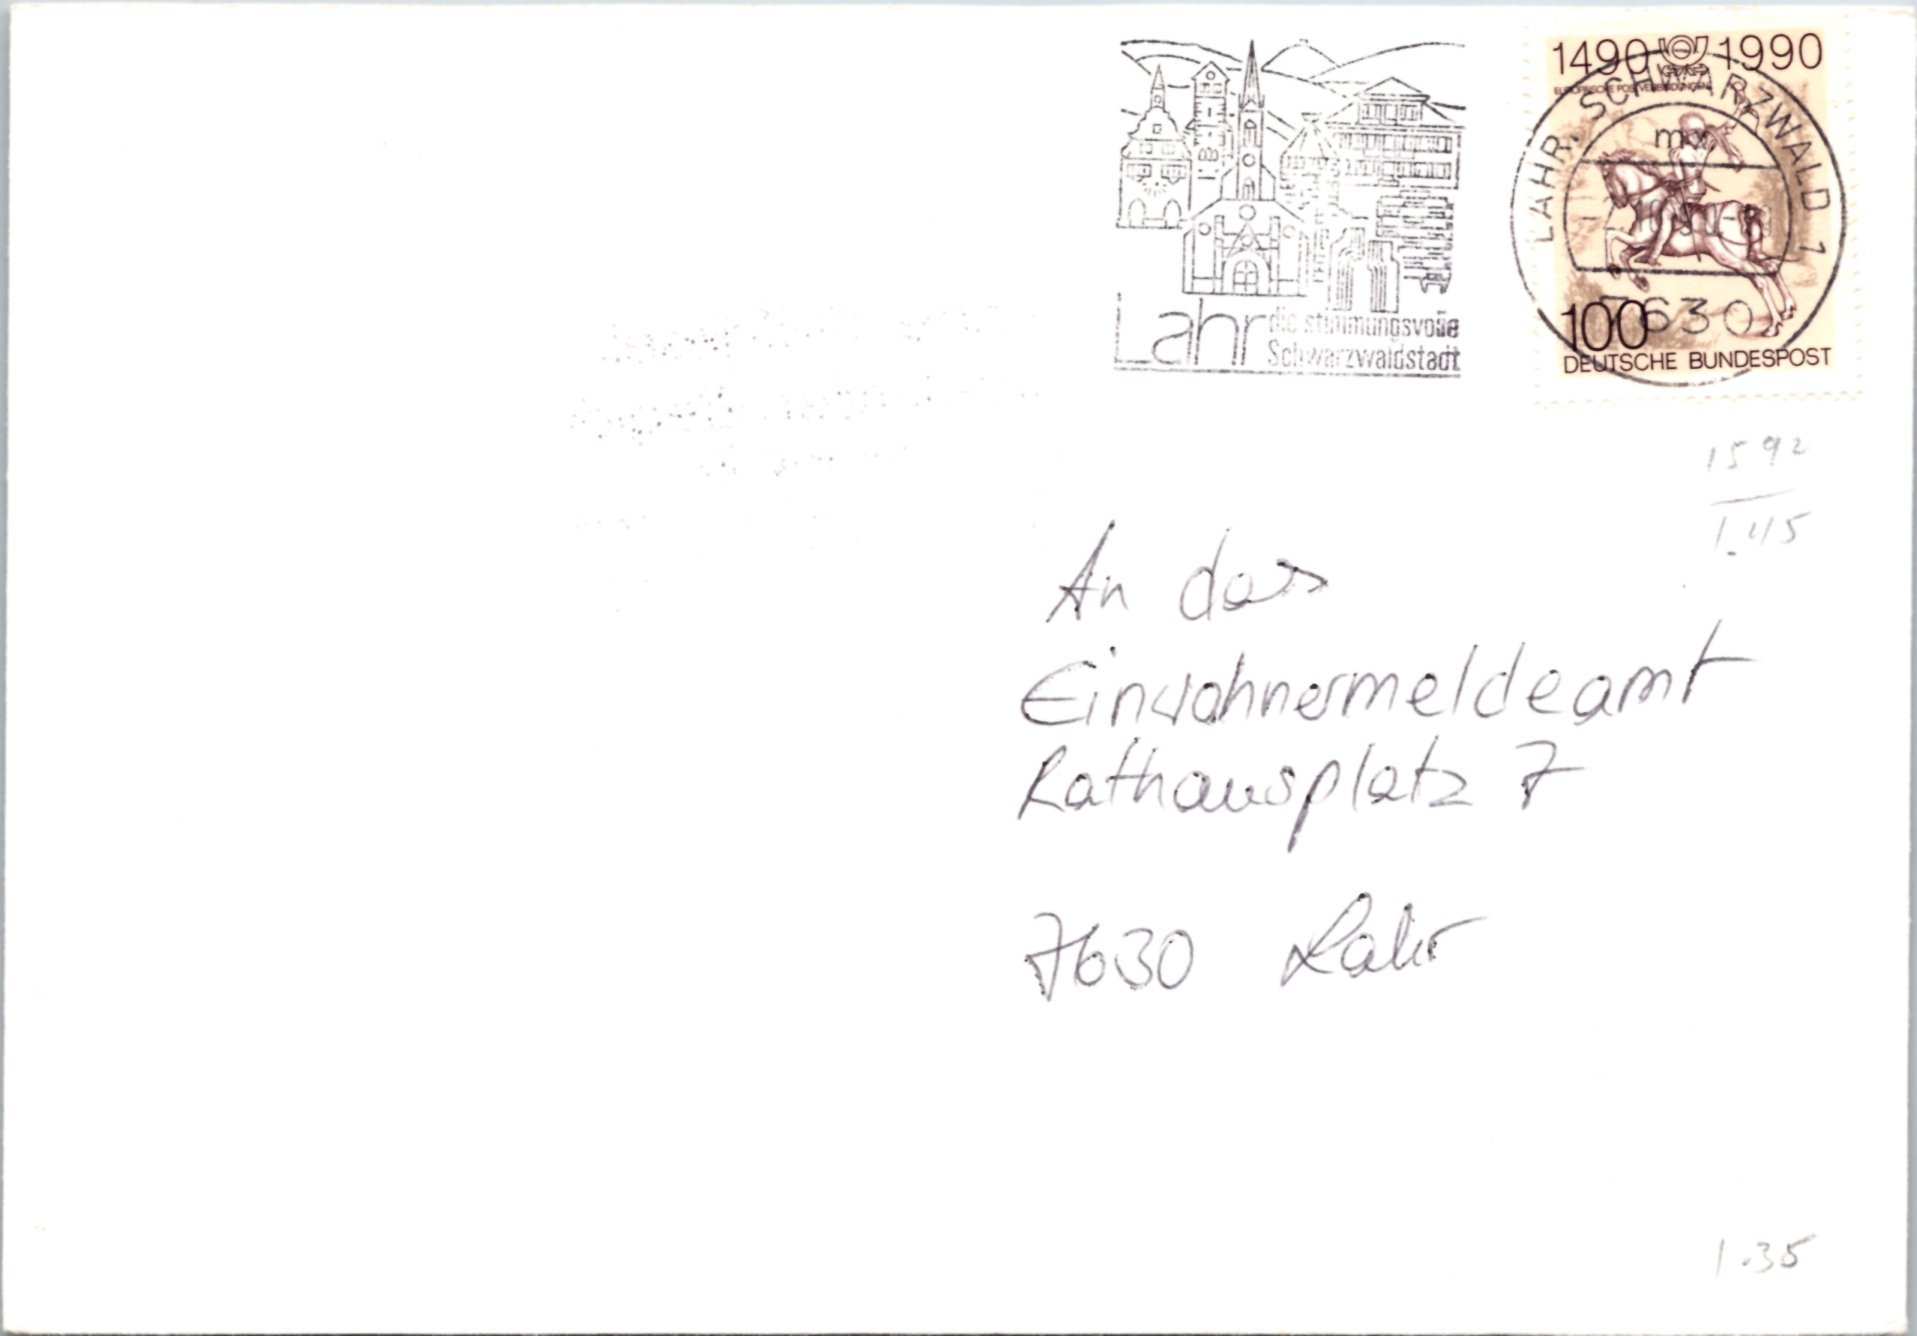 1490 1990
EUROPÄISCHE POSTVERBINDUNGEN
LAHR, SCHWARZWALD 1
mx
7630
100
DEUTSCHE BUNDESPOST
Lahr die stimmungsvolle
Schwarzwaldstadt
1592
1.45
An das
Einwohnermeldeamt
Rathausplatz 7
7630 Lahr
1.35